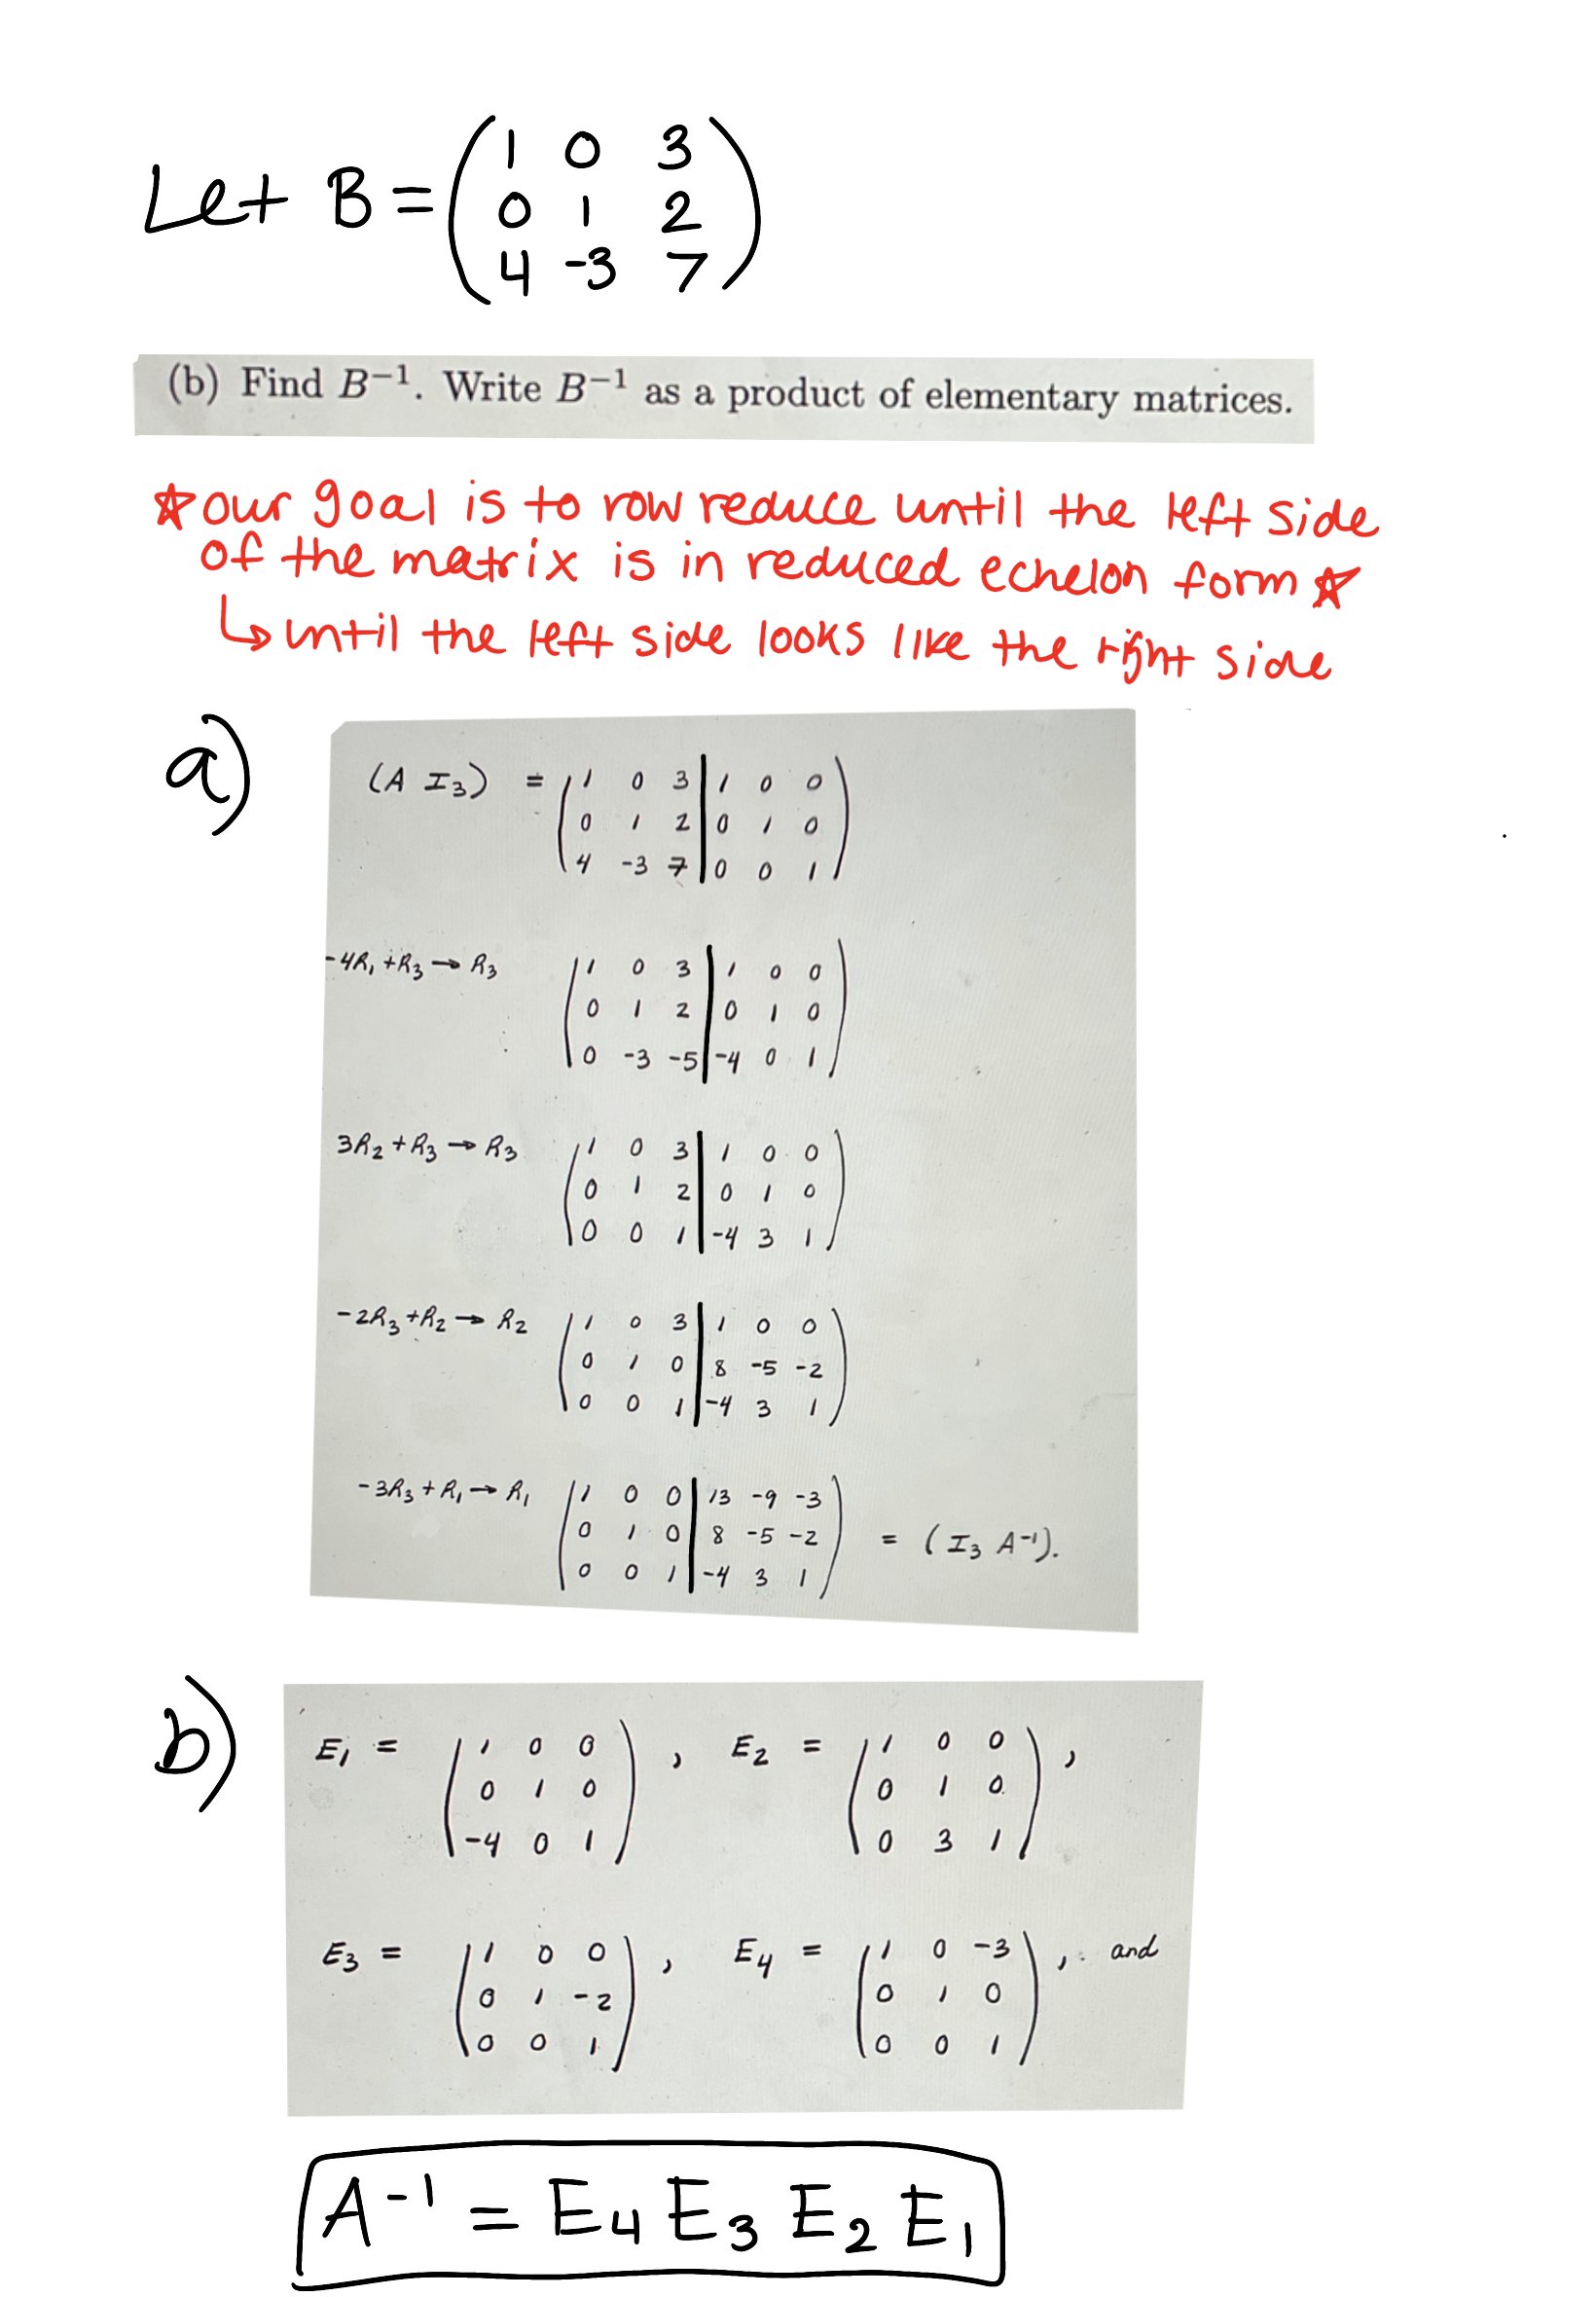 Let B = ( 1 0 3
0 1 2
4 -3 7 )
(b) Find B⁻¹. Write B⁻¹ as a product of elementary matrices.
☆ our goal is to row reduce until the left side
of the matrix is in reduced echelon form ☆
↳ until the left side looks like the right side
a)
(A I₃) = ( 1 0 3 | 1 0 0
0 1 2 | 0 1 0
4 -3 7 | 0 0 1 )
-4R₁ + R₃ → R₃ ( 1 0 3 | 1 0 0
0 1 2 | 0 1 0
0 -3 -5 | -4 0 1 )
3R₂ + R₃ → R₃ ( 1 0 3 | 1 0 0
0 1 2 | 0 1 0
0 0 1 | -4 3 1 )
-2R₃ + R₂ → R₂ ( 1 0 3 | 1 0 0
0 1 0 | 8 -5 -2
0 0 1 | -4 3 1 )
-3R₃ + R₁ → R₁ ( 1 0 0 | 13 -9 -3
0 1 0 | 8 -5 -2 = (I₃ A⁻¹).
0 0 1 | -4 3 1 )
b)
E₁ = ( 1 0 0 , E₂ = ( 1 0 0 ,
0 1 0 0 1 0
-4 0 1 ) 0 3 1 )
E₃ = ( 1 0 0 , E₄ = ( 1 0 -3 , and
0 1 -2 0 1 0
0 0 1 ) 0 0 1 )
A⁻¹ = E₄ E₃ E₂ E₁